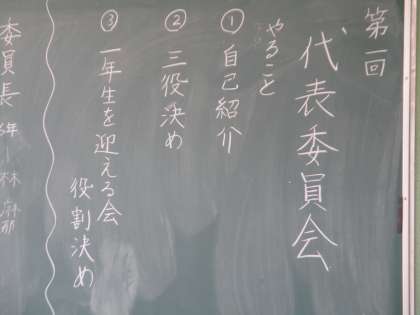 第一回
代表委員会
やること
① 自己紹介
② 三役決め
③ 一年生を迎える会
役割決め
委員長